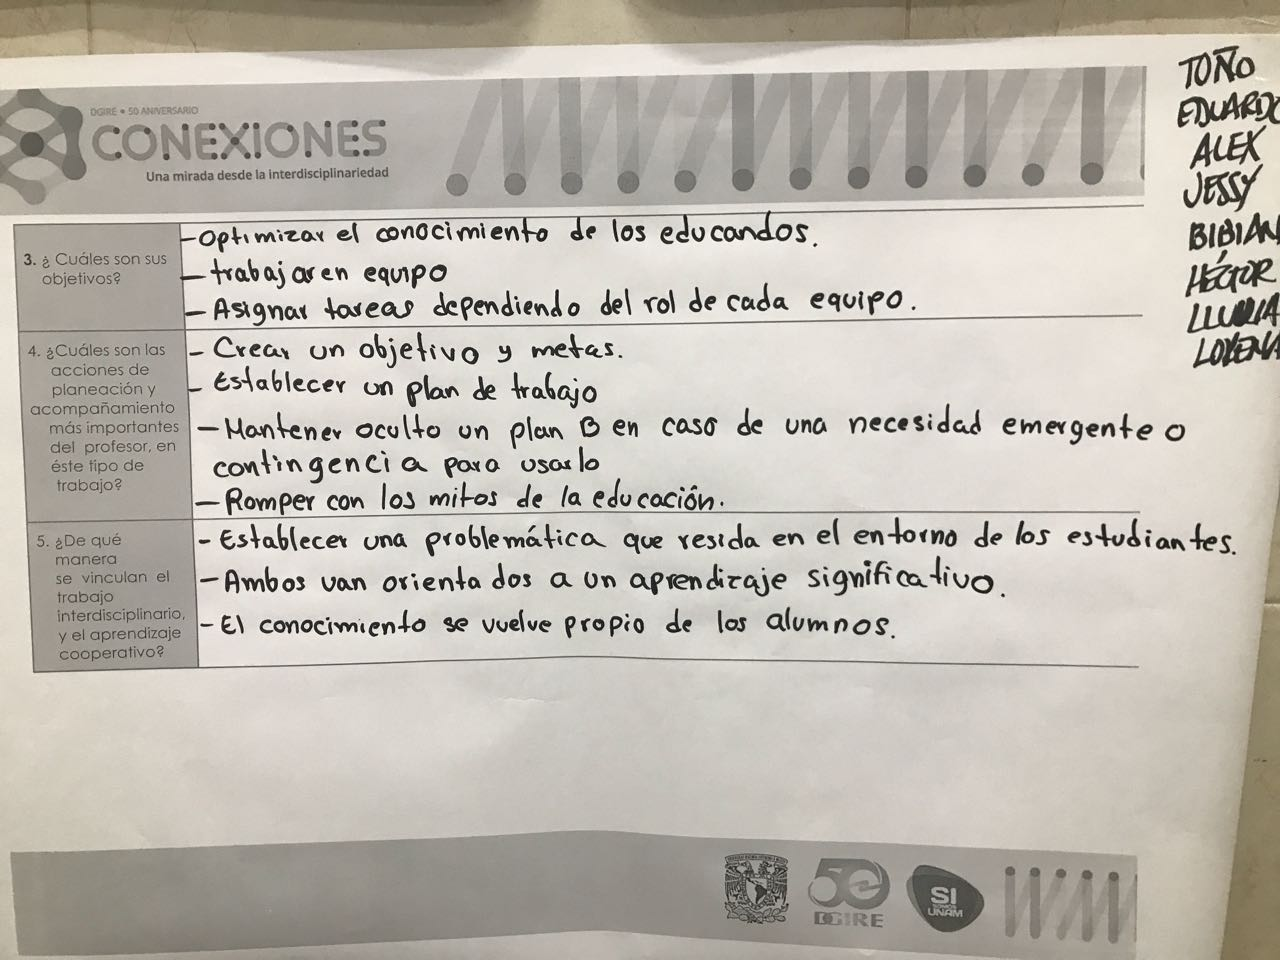 DGIRE • 50 ANIVERSARIO
CONEXIONES
Una mirada desde la interdisciplinariedad
TOÑO
EDUARDO
ALEX
JESSY
BIBIAN
HÉCTOR
LORENA
3. ¿ Cuáles son sus
objetivos?
- Optimizar el conocimiento de los educandos.
- trabajar en equipo
- Asignar tareas dependiendo del rol de cada equipo.
4. ¿Cuáles son las
acciones de
planeación y
acompañamiento
más importantes
del profesor, en
éste tipo de
trabajo?
- Crear un objetivo y metas.
- Establecer un plan de trabajo
- Mantener oculto un plan B en caso de una necesidad emergente o
contingencia para usarlo
- Romper con los mitos de la educación.
5. ¿De qué
manera
se vinculan el
trabajo
interdisciplinario,
y el aprendizaje
cooperativo?
- Establecer una problemática que resida en el entorno de los estudiantes.
- Ambos van orientados a un aprendizaje significativo.
- El conocimiento se vuelve propio de los alumnos.
50
DGIRE
SI
SOMOS
UNAM